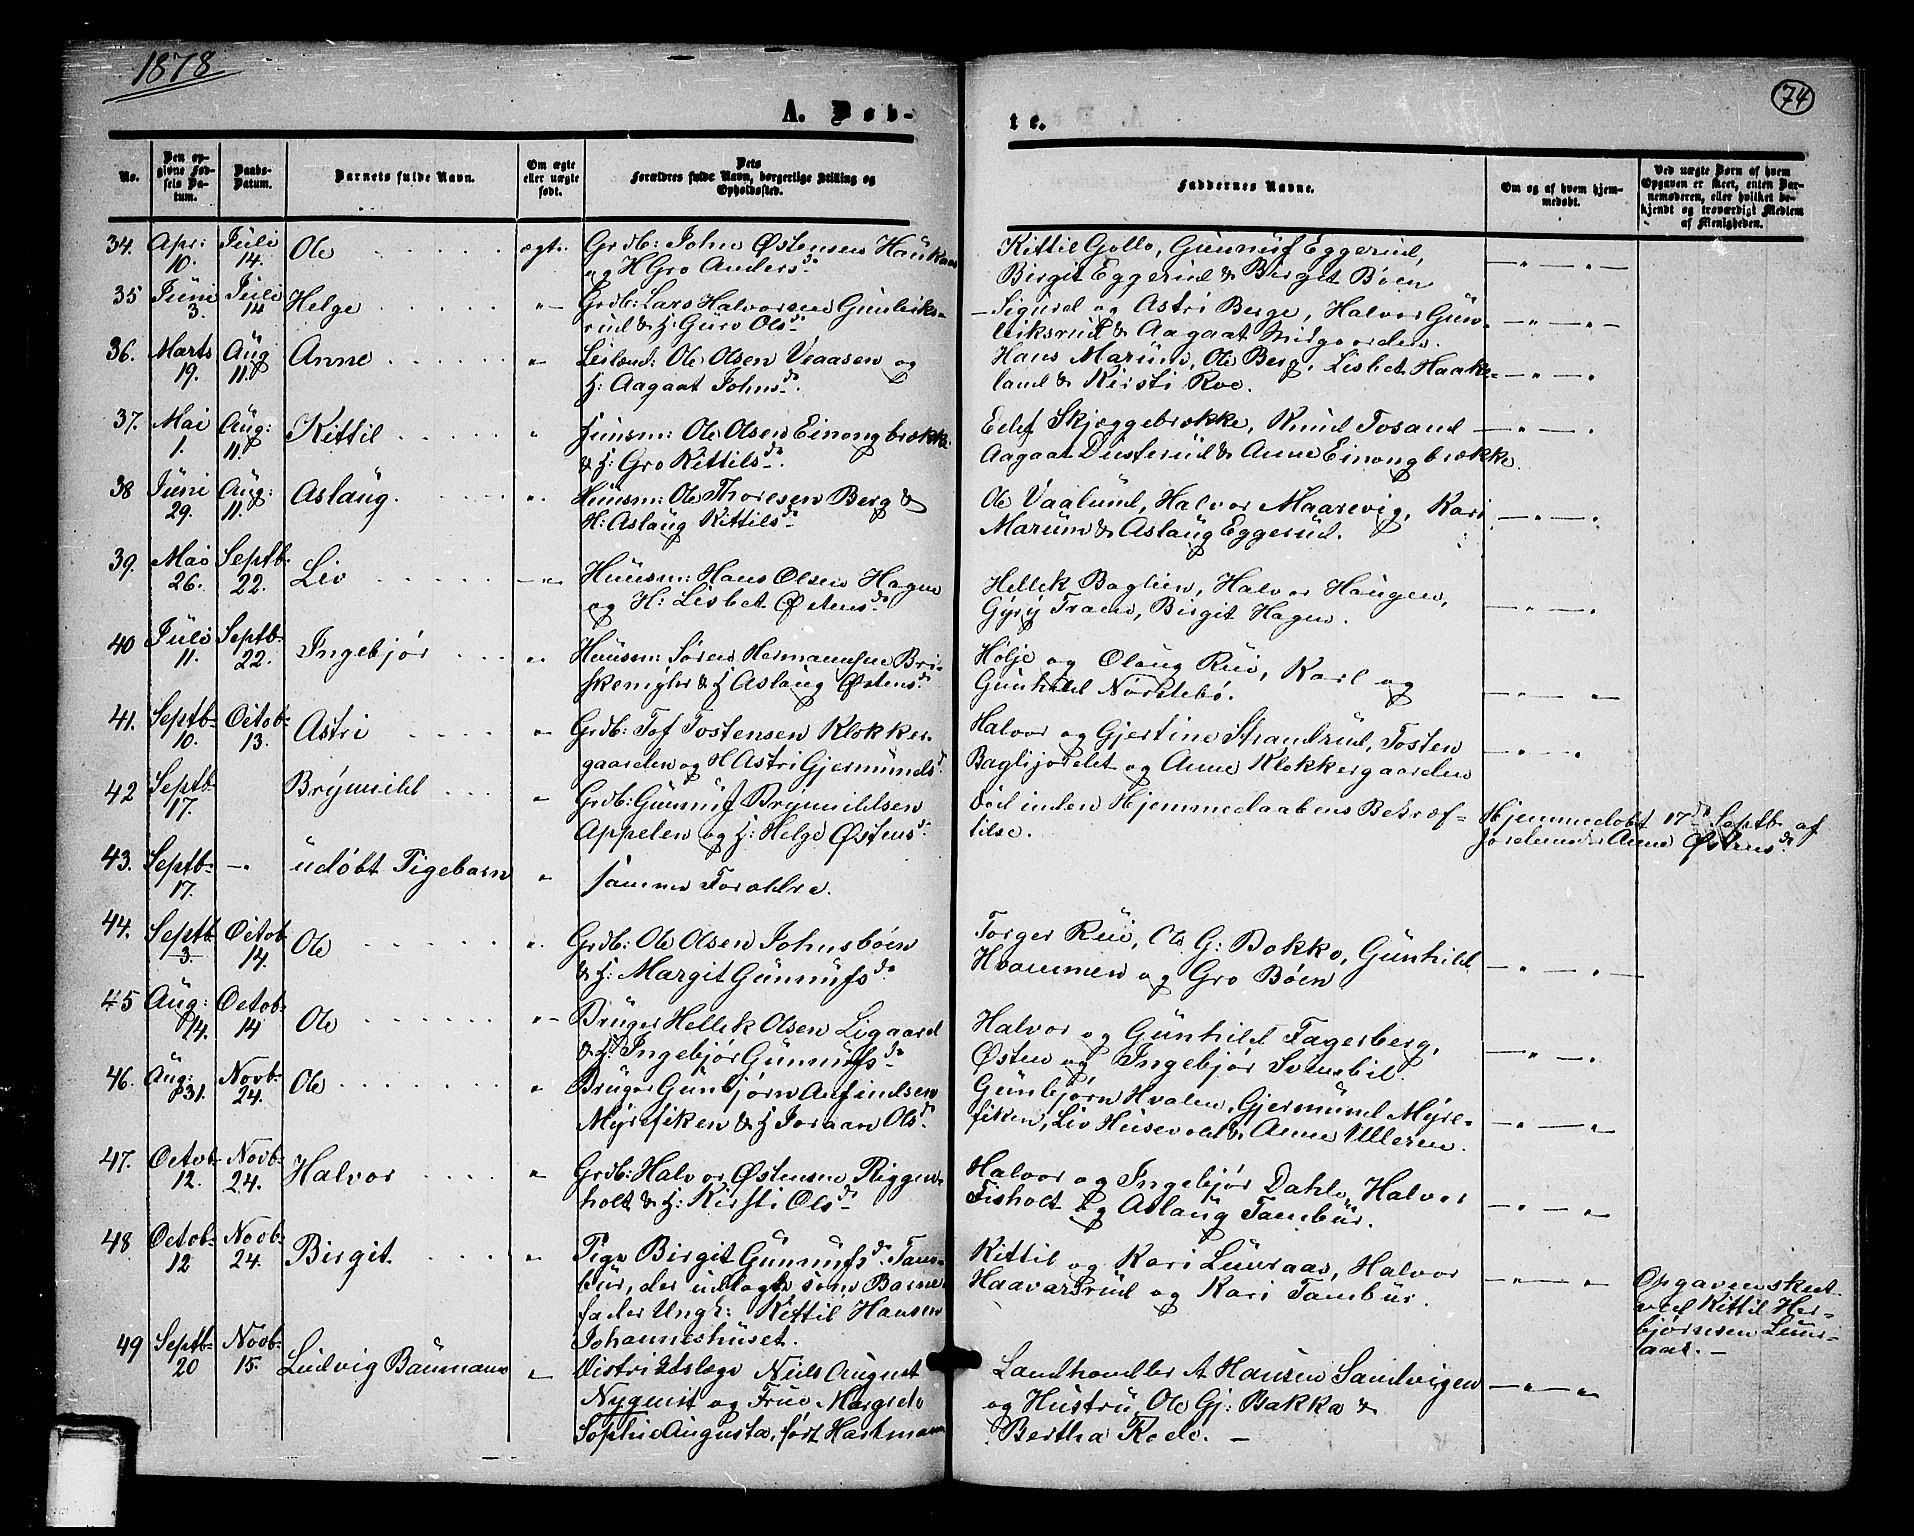 1878
74
A. Døb-
te.
No.
Den op-
givne Fød-
sels Da-
tum.
Daabs-
Datum.
Barnets fulde Navn.
Om ægte
eller uægte
født.
Dets
Forældres fulde Navn, borgerlige Stilling og
Opholdssted.
Faddernes Navne.
Om og af hvem hjem-
medøbt.
Ved uægte Børn af hvem
Opgaven er skeet, enten Bar-
nemoderen, eller hvilket be-
kjendt og troværdigt Medlem
af Menigheden.
34. Apr: 10. Juli 14. Ole ægt. Grdb: John Østensen Haukaas
og H Gro Andersd.
Kittil Gollo, Gunnuf Eggerud,
Birgit Eggerud & Birgit Bøen
35 Juni 3. Juli 14 Helge Grdb: Lars Halvorsen Gunleiks-
rud & H: Guro Olsd.
Sigurd og Astri Berge, Halvor Gun-
leiksrud & Aagaat Midgaarden.
36. Marts 19. Aug 11. Anne Leilænd: Ole Olsen Vraasen og
H: Aagaat Johnsd.
Hans Marum, Ole Berg, Lisbet Haake-
land & Kirsti Roe.
37. Mai 1. Aug: 11. Kittil Huusm: Ole Olsen Einongbrækk
& H: Gro Kittilsd.
Edef Skjæggebrække, Knud Fosand
Aagaat Dusterud & Anne Einongbrække.
38 Juni 29. Aug: 11. Aslaug. Huusm: Ole Thoresen Berg &
H: Aslaug Kittilsd.
Ole Vaalund, Halvor Maarevig, Kari
Marum & Aslaug Eggerud.
39. Mai 26. Septb. 22. Liv Huusm: Hans Olsen Hagen
og H: Lisbet Østensd.
Hellek Baglien, Halvor Haugen,
Gyry Traen, Birgit Hagen.
40 Juli 11. Septb. 22. Ingebjør Huusm: Søren Hermannsen Bri-
& H Aslaug Østensd.
Hølje og Olaug Rui, Karl og
Gunhild Nørstebø.
41. Septb. 10. Octob. 13. Astri Grdb: Tof Tostensen Klokker-
gaarden og H Astri Gjermundsd.
Halvor og Gjertine Strandrud, Tosten
Baglijordet og Anne Klokkergaarden
42 Septb 17. Brynnild Grdb: Gunnuf Brynnildsen
Appelen og H: Helge Østensd.
Død inden Hjemmedaabens Bekræf-
telse.
Hjemmedøbt 17de Septb. af
Jordemoder Anne Østensd.
43. Septb. 17. —. udøbt Pigebarn samme Forældre.
44. Septb 3. Octob 14. Ole Grdb: Ole Olsen Johnsbøen
& H: Margit Gunnufsd.
Torger Rui, Ole G: Bokko, Gunhild
Hvammen og Gro Bøen
45 Aug: 14. Octob. 14 Ole Bruger Hellek Olsen Ligaard
& H: Ingebjør Gunnufsd.
Halvor og Gunhild Fagerberg,
Østen og Ingebjør Svensbil.
46. Aug: 31. Novb. 24. Ole Bruger Gunbjørn Anfindsen
Myrefiken & H Joraan Olsd.
Gunbjørn Hvalen, Gjermund Myre-
fiken, Liv Husevold & Anne Ulleren.
47. Octob. 12. Novb. 24. Halvor Grdb: Halvor Østensen Riggen-
holt & H: Kirsti Olsd.
Halvor og Ingebjør Dahle, Halvor
Fisholt og Aslaug Tambur.
48 Octob. 12 Novb. 24. Birgit. Pige Birgit Gunnufsd. Tam-
bur, der udlagde som Barne-
fader Ungk: Kittil Hansen
Johanneshuset.
Kittil og Kari Luuraas, Halvor
Haavardsrud og Kari Tambur.
Opgaven skeet
ved Kittil Her-
bjørnsen Luur-
aas. —
49 Septb. 20 Novb. 15. Ludvig Baumann Distriktslæge Niels August
Nyquist og Frue Margrete
Sophie Augusta, født Hartmann
Landhandler A Hansen Sandvigen
og Hustru, Ole Gj: Bakka &
Bertha Rode. —